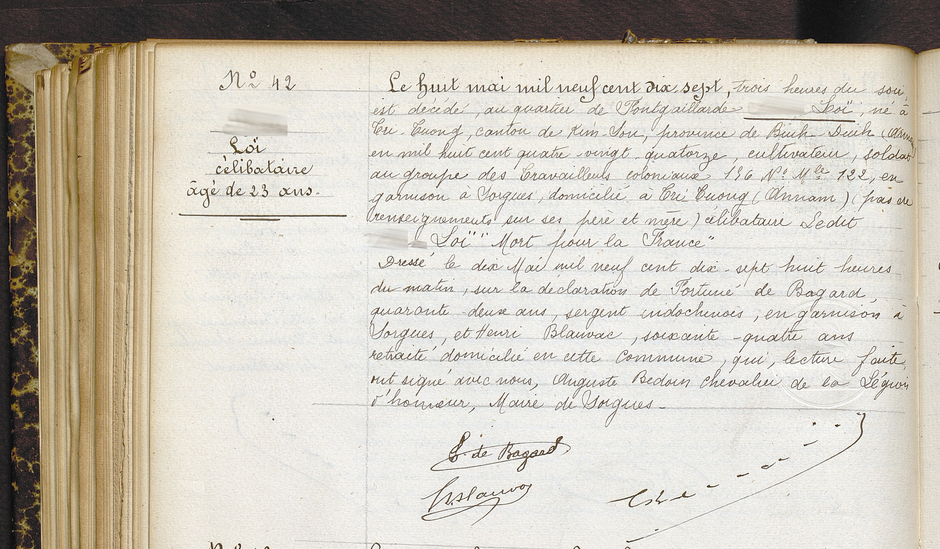 Nº 42
Loï
célibataire
âgé de 23 ans.
Le huit mai mil neuf cent dix sept, trois heures du soir
est décédé, au quartier de Fontgaillarde Loï, né à
Tri-Tuong, canton de Kim-Son, province de Binh-Dinh (Annam
en mil huit cent quatre-vingt-quatorze, cultivateur, soldat
au groupe des travailleurs coloniaux 136 Nº Mle 122, en
garnison à Sorgues, domicilié à Tri Tuong (Annam) (pas de
renseignements sur ses père et mère) célibataire Ledit
Loï "Mort pour la France"
Dressé le dix Mai mil neuf cent dix-sept huit heures
du matin, sur la déclaration de Fortuné de Bagard,
quarante-deux ans, sergent indochinois, en garnison à
Sorgues, et Henri Blauvac, soixante-quatre ans
retraité domicilié en cette commune, qui, lecture faite,
ont signé avec nous, Auguste Bédoin chevalier de la Légion
d'honneur, Maire de Sorgues.-
de Bagard
Blauvac